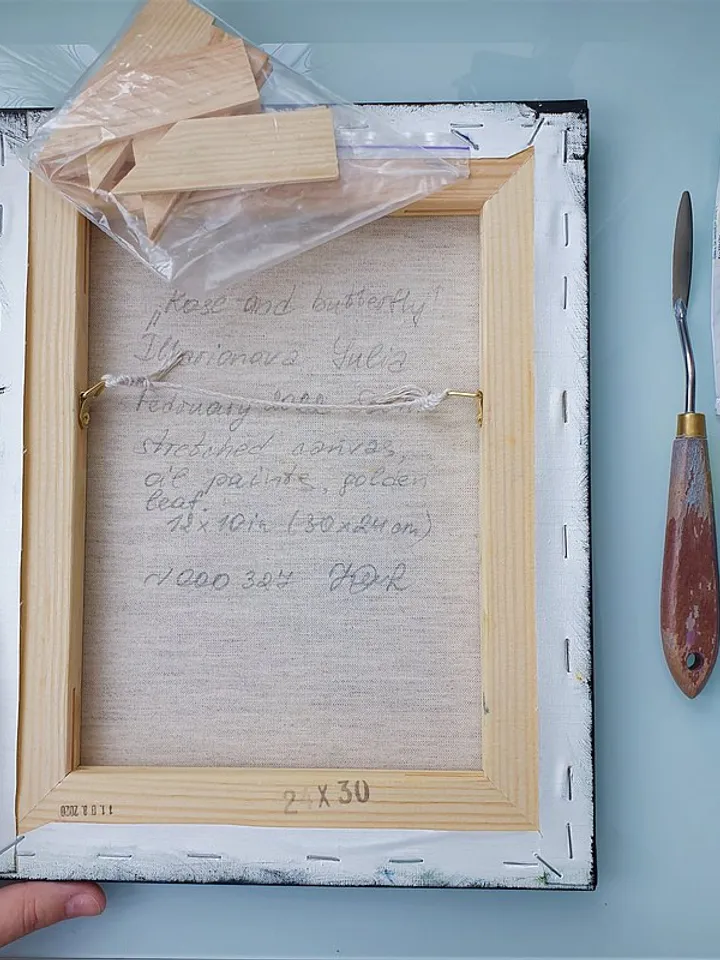 „Rose and butterfly"
Illarionova Yulia
February 2022
stretched canvas,
oil paints, golden
leaf.
12x10in (30x24cm)
N 000 327
24 X 30
11.08.2020